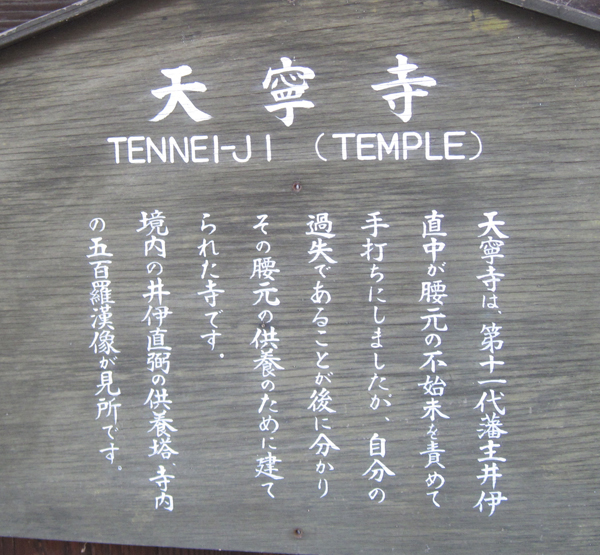 天寧寺
TENNEI-JI (TEMPLE)
天寧寺は、第十一代藩主井伊
直中が腰元の不始末を責めて
手打ちにしましたが、自分の
過失であることが後に分かり
その腰元の供養のために建て
られた寺です。
境内の井伊直弼の供養塔、寺内
の五百羅漢像が見所です。